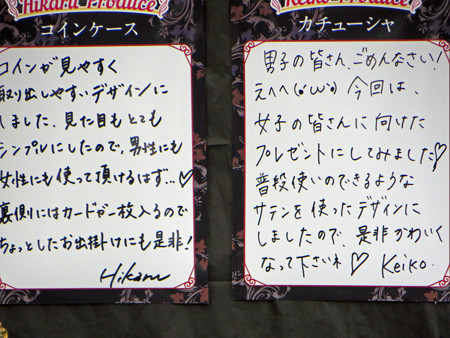 Hikaru Produce
コインケース
コインが見やすく
取り出しやすいデザインに
しました。見た目もとても
シンプルにしたので、男性にも
女性にも使って頂けるはず…♡
裏側にはカードが一枚入るので
ちょっとしたお出掛けにも是非!
Hikaru
Keiko Produce
カチューシャ
男子の皆さん、ごめんなさい!
えへへ(・ω・) 今回は、
女子の皆さんに向けた
プレゼントにしてみました♡
普段使いのできるような
サテンを使ったデザインに
しましたので、是非かわいく
なって下さいネ♡ Keiko.